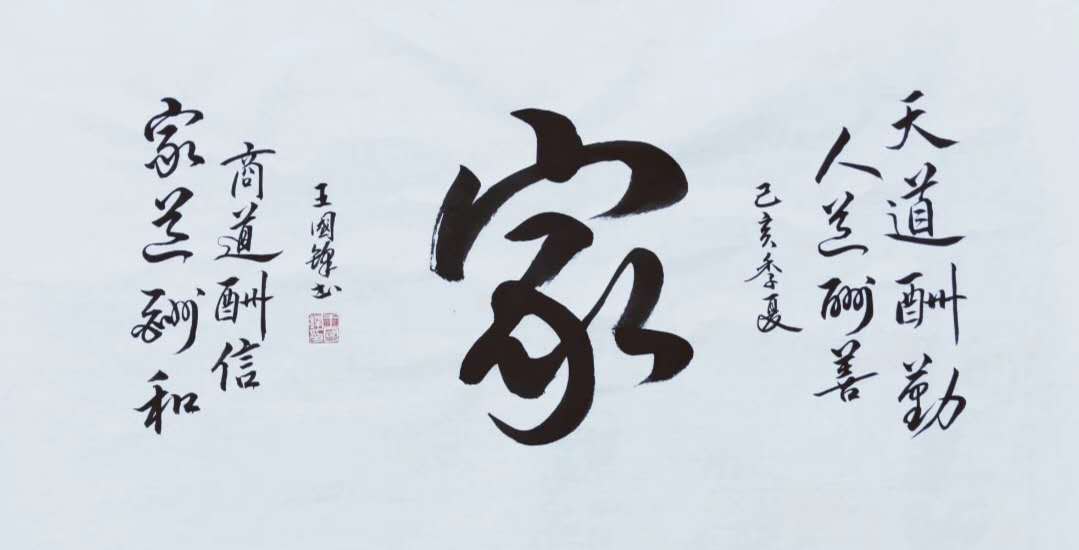 天道酬勤
人道酬善
己亥季夏
家
王國鋒书
商道酬信
家道酬和